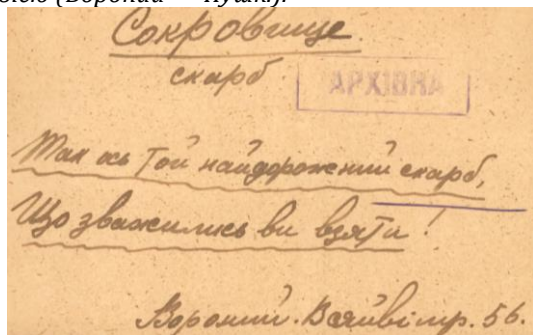 Сокровище
скарб
АРХІВНА
Так ось той найдорожчий скарб,
Що зважились ви взяти!
Вороний. стр. 56.